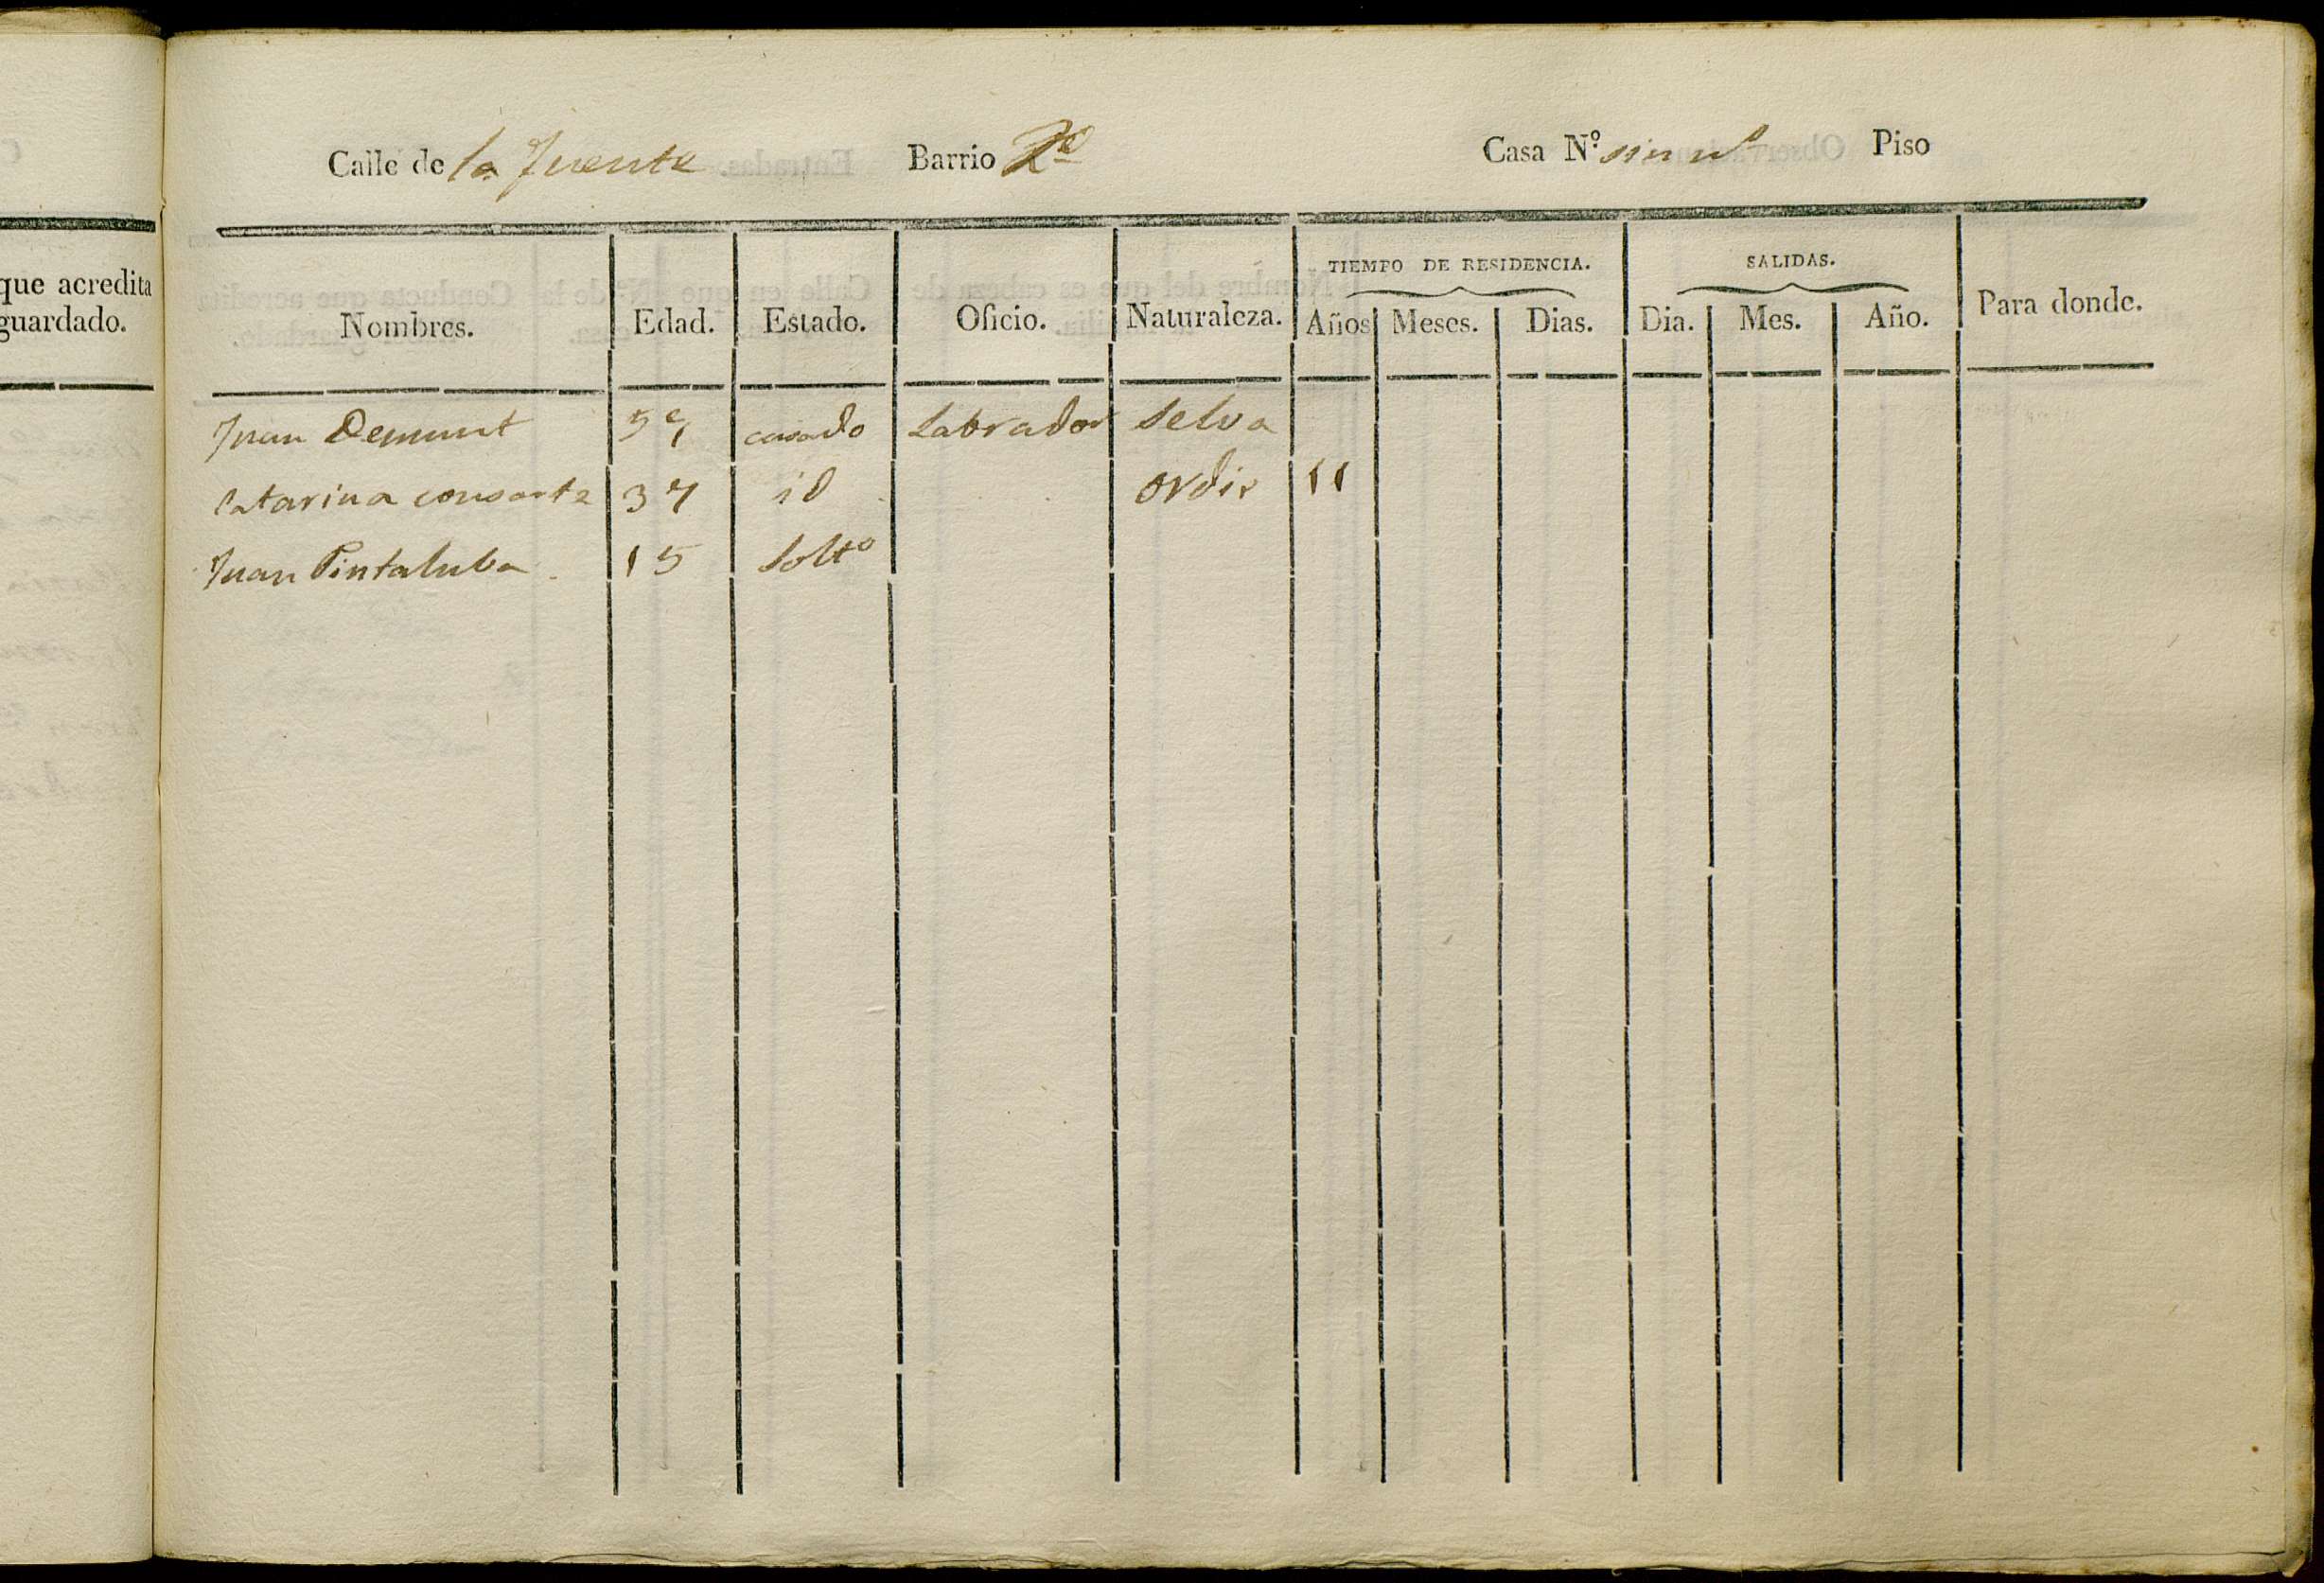 que acredita
guardado.
Calle de la Fuente Barrio 2º Casa N.º sin nº Piso
TIEMPO DE RESIDENCIA. SALIDAS.
Nombres. Edad. Estado. Oficio. Naturaleza. Años Meses. Dias. Dia. Mes. Año. Para donde.
Juan Demunt casado Labrador Selva
Catarina consorte 37 id 11
Juan Pintaluba 15 Soltº